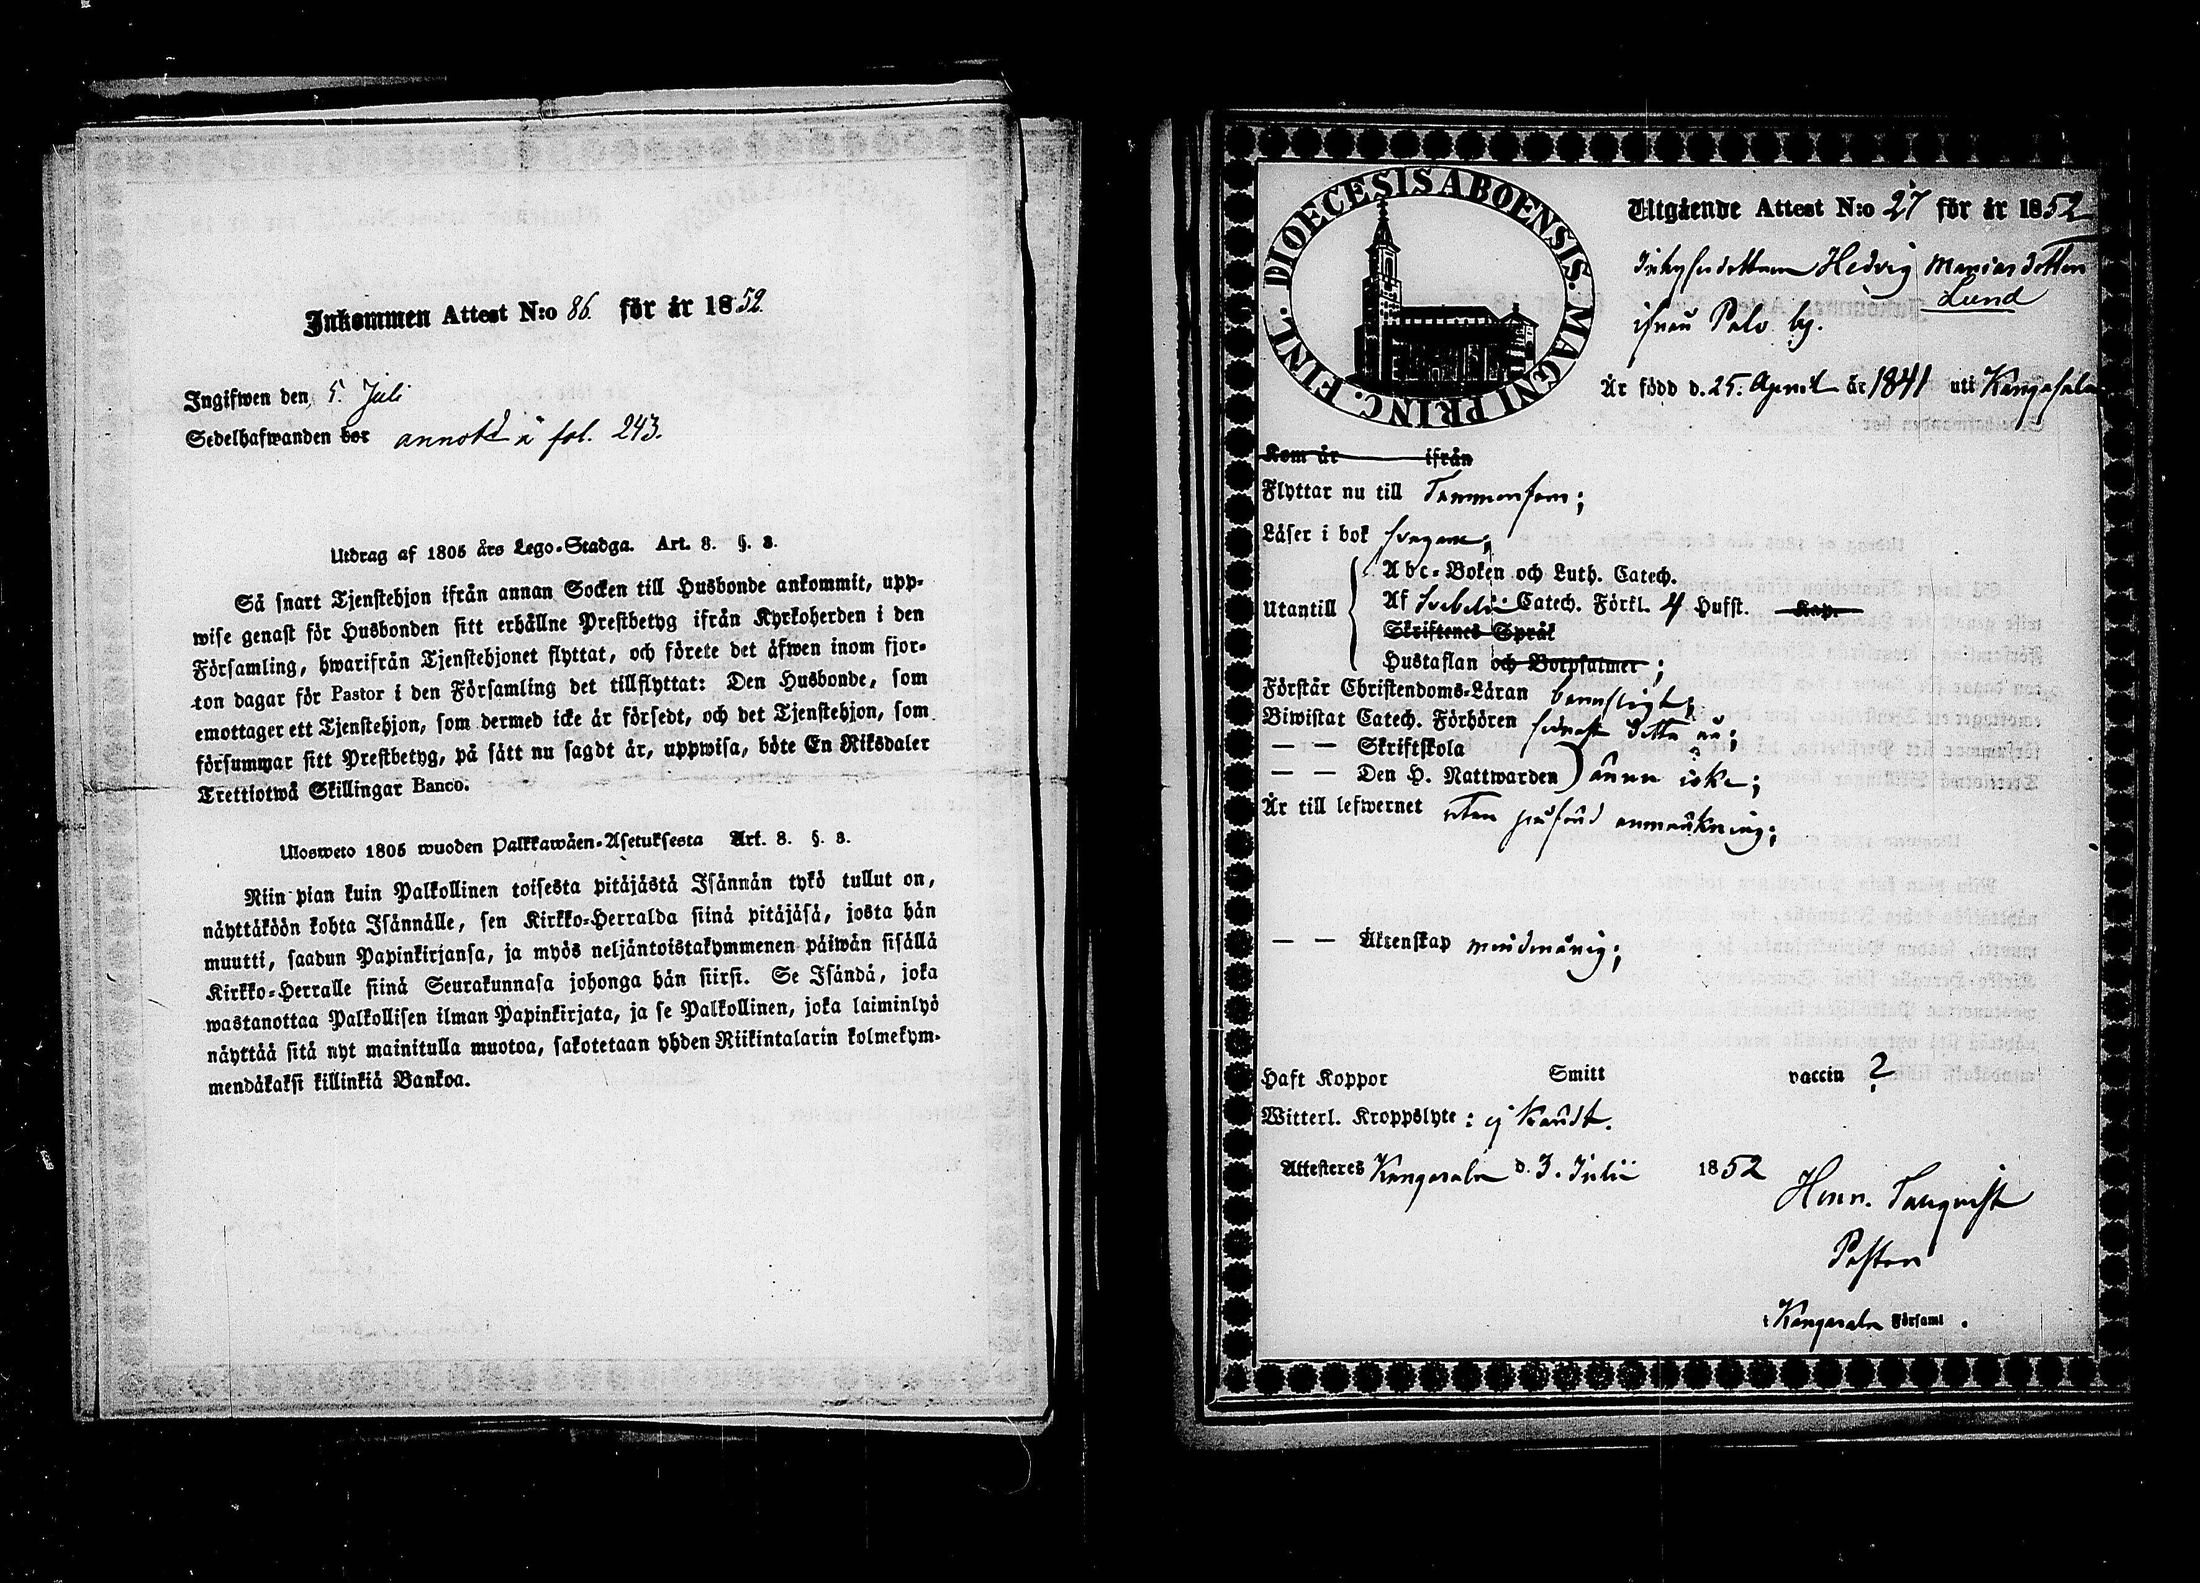 Inkommen Attest N:o 86. för år 1852.
Ingifwen den 5. Juli
Sedelhafwanden bor annot: å fol. 243.
Utdrag af 1805 års Lego-Stadga. Art. 8. §. 3.
Så snart Tjenstehjon ifrån annan Socken till Husbonde ankommit, upp-
wise genast för Husbonden sitt erhållne Prestbetyg ifrån Kyrkoherden i den
Församling, hwarifrån Tjenstehjonet flyttat, och förete det äfwen inom fjor-
ton dagar för Pastor i den Församling det tillflyttat: Den Husbonde, som
emottager ett Tjenstehjon, som dermed icke är försedt, och det Tjenstehjon, som
försummar sitt Prestbetyg, på sätt nu sagdt är, uppwisa, böte En Riksdaler
Trettiotwå Skillingar Banco.
Ulosweto 1805 wuoden Palkkawäen-Asetuksesta Art. 8. §. 3.
Niin pian kuin Palkollinen toisesta pitäjästä Isännän tykö tullut on,
näyttäköön kohta Isännälle, sen Kirkko-Herralda siinä pitäjäsä, josta hän
muutti, saadun Papinkirjansa, ja myös neljäntoistakymmenen päiwän sisällä
Kirkko-Herralle siinä Seurakunnasa johonga hän siirsi. Se Isändä, joka
wastanottaa Palkollisen ilman Papinkirjata, ja se Palkollinen, joka laiminlyö
näyttää sitä nyt mainitulla muotoa, sakotetaan yhden Riikintalarin kolmekym-
mendäkaksi killinkiä Bankoa.
DIOECESIS ABOENSIS. MAGNI PRINC. FINL.
Utgående Attest N:o 27 för år 1852
Inhysesdottren Hedvig Mariasdotter
Lund
ifrån Palo by.
Är född d. 25. April år 1841 uti Kangasala
Kom år ifrån
Flyttar nu till Tammerfors;
Läser i bok svagare;
Abc-Boken och Luth. Catech.
Utantill Af Svebelii Catech. Förkl. 4 Hufst. Kap.
Skriftenes Språk
Hustaflan och Botpsalmer;
Förstår Christendoms-Läran barnsligt;
Biwistat Catech. Förhören sednast detta år;
— — Skriftskola
— — Den H. Nattwarden ännu icke;
Är till lefwernet utan påförd anmärkning;
— — Äktenskap minderårig;
Haft Koppor Smitt vaccin ?
Witterl. Kroppslyte: ej kändt.
Attesteres Kangasala d. 3. Julii 1852
Henr.
Pastor
i Kangasala Församl.